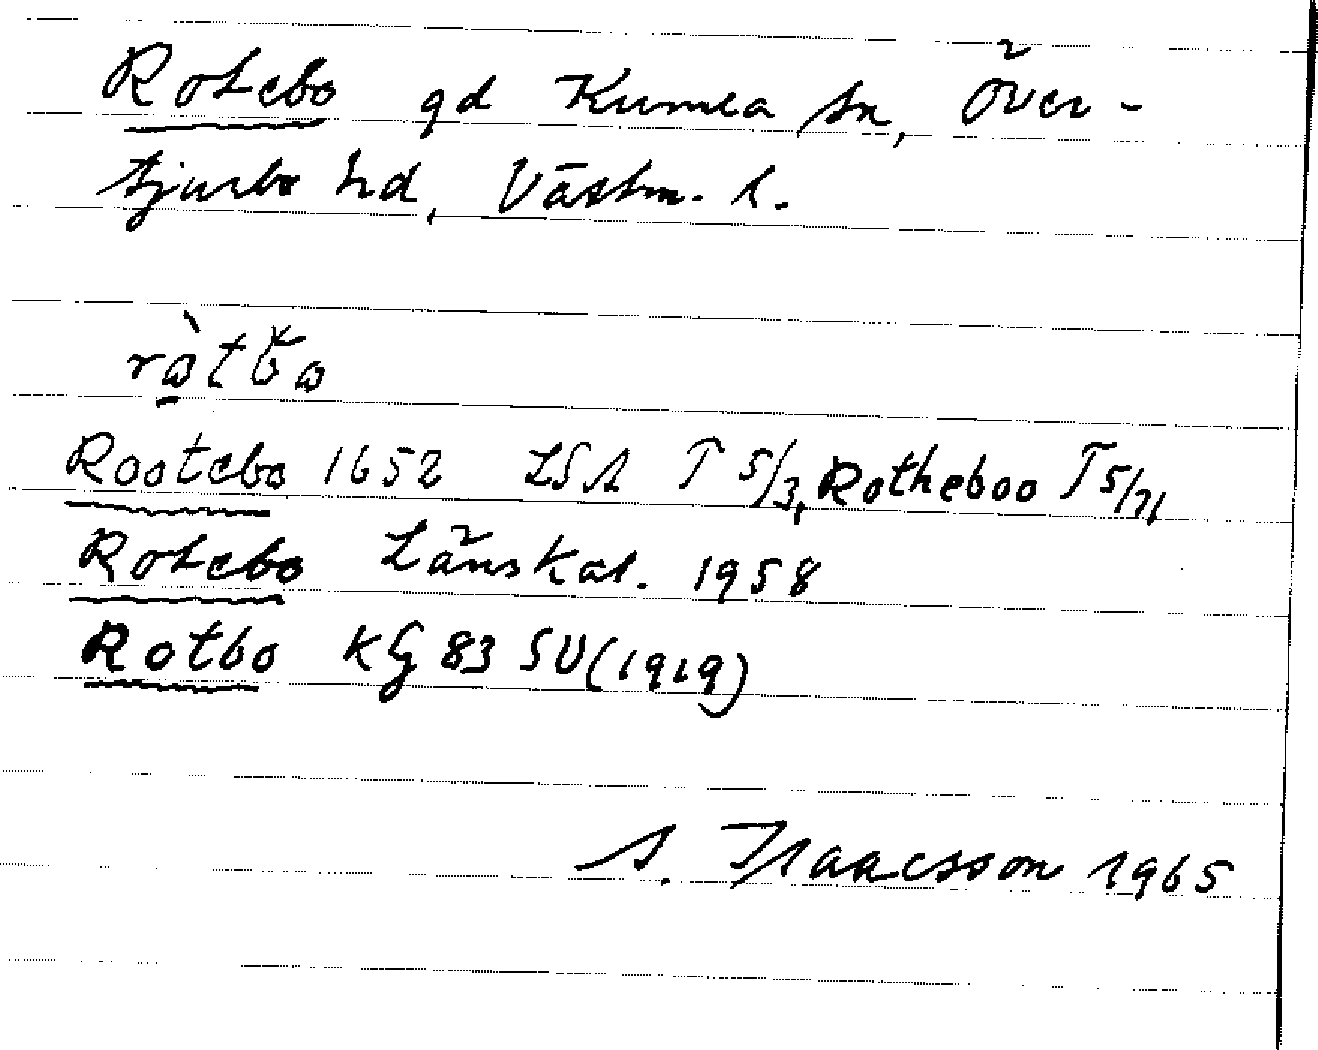 Rotebo gd Kumla sn, Över-
tjurbo hd, Västm. l.
Rootebo 1652 LSA T 5/3, Rotheboo T5/71
Rotebo Länskal. 1958
Rotbo KG 83 SV (1919)
S. Isaacsson 1965